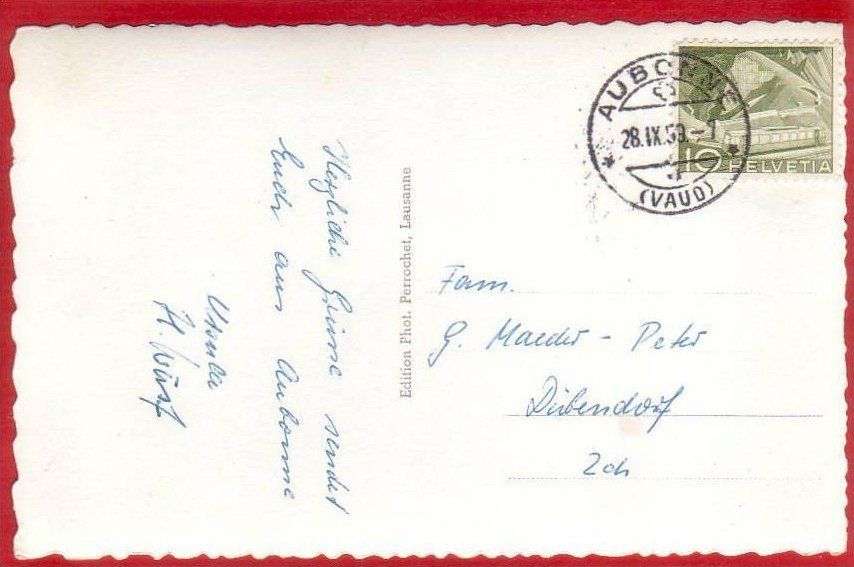 Herzliche Grüsse sendet
Euch aus Aubonne
Ursula
H. Würf
Edition Phot. Perrochet, Lausanne
AUBONNE
28.IX.50.-1
(VAUD)
10 HELVETIA
Fam.
G. Maeder - Peter
Dübendorf
Zch